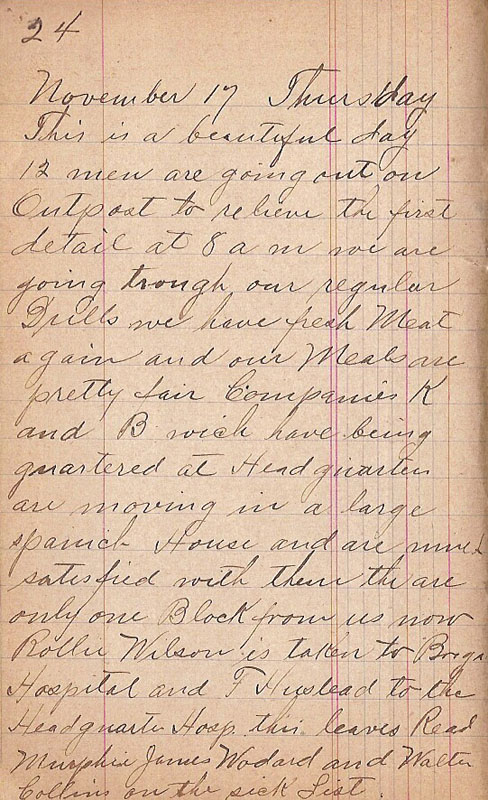 24
November 17 Thursday
This is a beautiful day
12 men are going out on
Outpost to relieve the first
detail at 8 a m we are
going trough our regular
Drills we have fresh Meat
again and our Meals are
pretty fair Companies K
and B wich have being
quartered at Headquarters
are moving in a large
spanich House and are
satisfied with them the are
only one Block from us now
Rollie Wilson is taken to
Hospital and F Huslead to the
Headquarter Hosp. this leaves Read
Murphie James Wodard and Walter
Collins on the sick List.